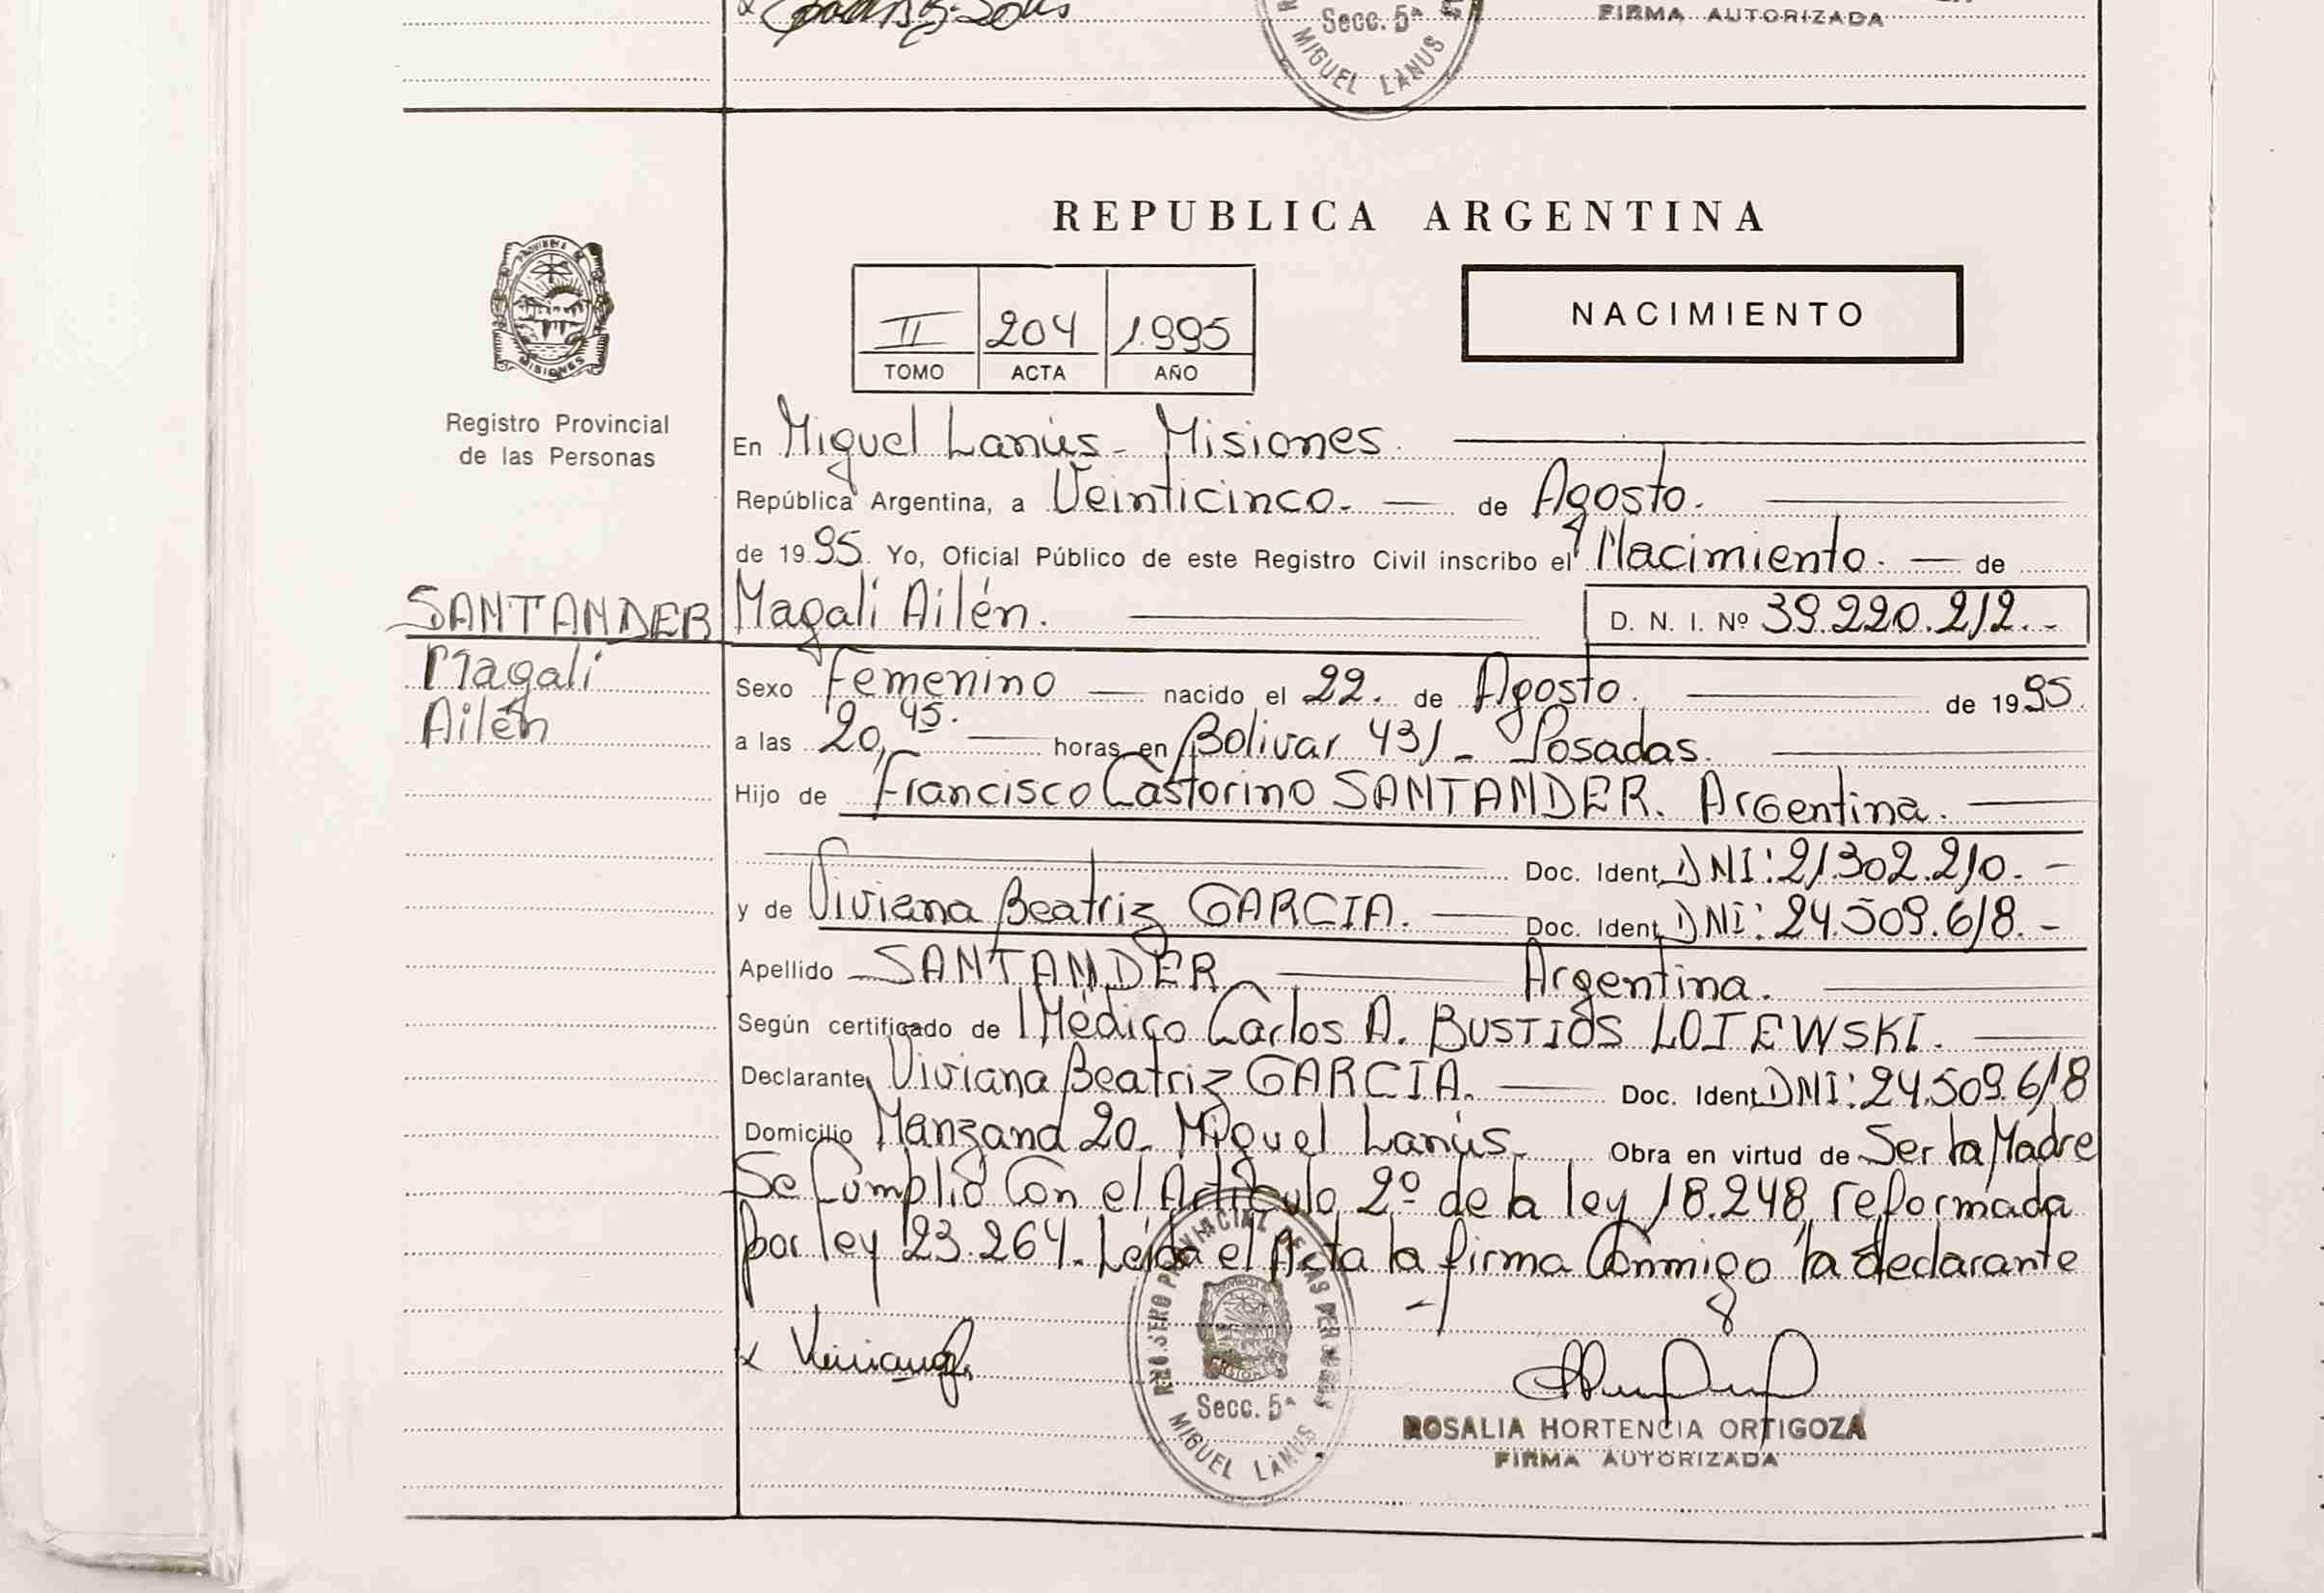 Secc. 5ª
MIGUEL LANUS
FIRMA AUTORIZADA
REPUBLICA ARGENTINA
PROVINCIA
MISIONES
II 204 1.995
TOMO ACTA AÑO
NACIMIENTO
Registro Provincial
de las Personas
En Miguel Lanús - Misiones.
República Argentina, a Veinticinco. — de Agosto.
de 1995. Yo, Oficial Público de este Registro Civil inscribo el Nacimiento. — de
SANTANDER
Magali
Ailén
Magali Ailén. D. N. I. Nº 39.220.212.-
Sexo Femenino — nacido el 22. de Agosto. de 1995.
a las 20,45. — horas en Bolivar 431 - Posadas.
Hijo de Francisco Castorino SANTANDER. Argentina.
Doc. Ident. DNI: 21.302.210. -
y de Viviana Beatriz GARCIA. — Doc. Ident. DNI: 24.509.618. -
Apellido SANTANDER — Argentina.
Según certificado de Médico Carlos A. BUSTIOS LOJEWSKI.
Declarante Viviana Beatriz GARCIA. — Doc. Ident. DNI: 24.509.618
Domicilio Manzana 20. Miguel Lanús. Obra en virtud de Ser la Madre
Se Cumplió Con el Artículo 2º de la ley 18.248, reformada
por ley 23.264. Leída el Acta la firma Conmigo la declarante
x
REGISTRO PROVINCIAL DE LAS PERSONAS
Secc. 5ª
MIGUEL LANUS
ROSALIA HORTENCIA ORTIGOZA
FIRMA AUTORIZADA